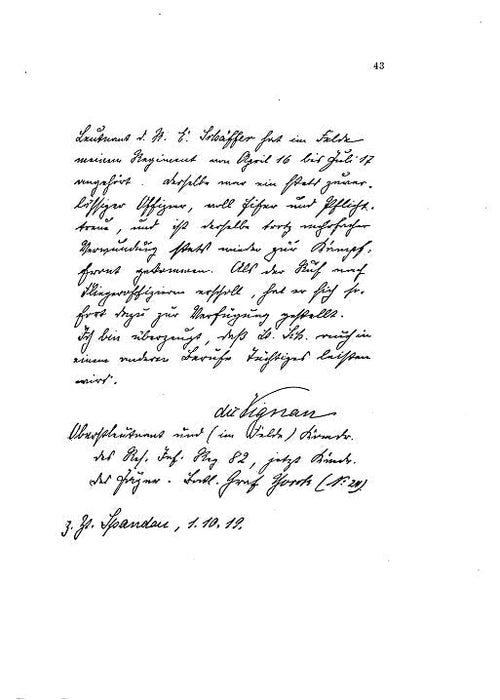 43
Leutnant d. R. E. Schäffer hat im Felde
meinem Regiment von April 16 bis Juli 17
angehört. Derselbe war ein stets zuver-
lässiger Offizier, voll Eifer und Pflicht-
treue, und ist derselbe trotz mehrfacher
Verwundung stets wieder zur Kampf-
front gekommen. Als der Ruf nach
Fliegeroffizieren erscholl, hat er sich so-
fort dazu zur Verfügung gestellt.
Ich bin überzeugt, daß L. Sch. auch in
einem anderen Berufe Tüchtiges leisten
wird.
du Vignau
Oberstleutnant und (im Felde) Komdr.
des Res. Inf. Reg 82, jetzt Komdr.
des Jäger. Batl. Graf Yorck (
z. Zt. Spandau, 1.10.19.